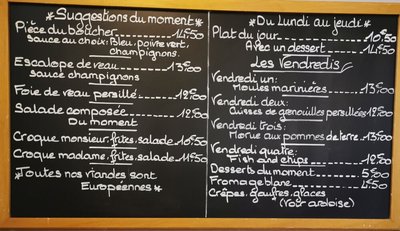 *Suggestions du moment*
Pièce du boucher 14€50
sauce au choix: Bleu, poivre vert,
champignons.
Escalope de veau 13€00
sauce champignons
Foie de veau persillé 12€00
Salade composée 12€00
Du moment
Croque monsieur, frites, salade 10€50
Croque madame, frites, salade 11€50
*Toutes nos viandes sont
Européennes*
*Du Lundi au jeudi*
Plat du jour 10€50
Avec un dessert 14€50
Les Vendredis
Vendredi un:
Moules marinières 13€00
Vendredi deux:
Cuisses de grenouilles persillées 12€00
Vendredi trois:
Morue aux pommes de terre. 13€00
Vendredi quatre:
Fish and chips 12€80
Desserts du moment 5€00
Fromage blanc 4€50
Crêpes, gaufres, glaces
(Voir ardoise)